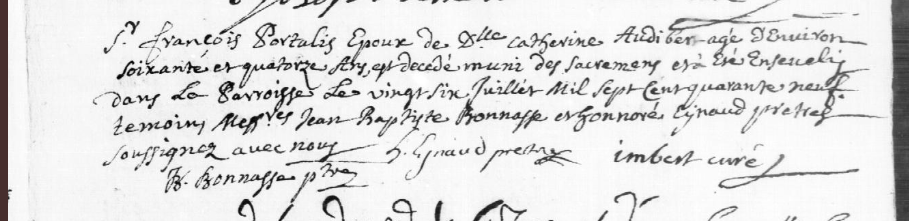 Sr françois Portalis Epoux de Dlle Catherine Audiber agé D'Environ
soixante et quatorze Ans, est decedé muni des sacremens et a Eté Enseveli
dans Le Parroisse Le vingt six Juillet Mil sept Cent quarante neuf
temoins Messres Jean Baptiste Bonnasse et honnoré Eynaud pretres
soussignez avec nous h. Eynaud pretre imbert curé
JB. Bonnasse ptre